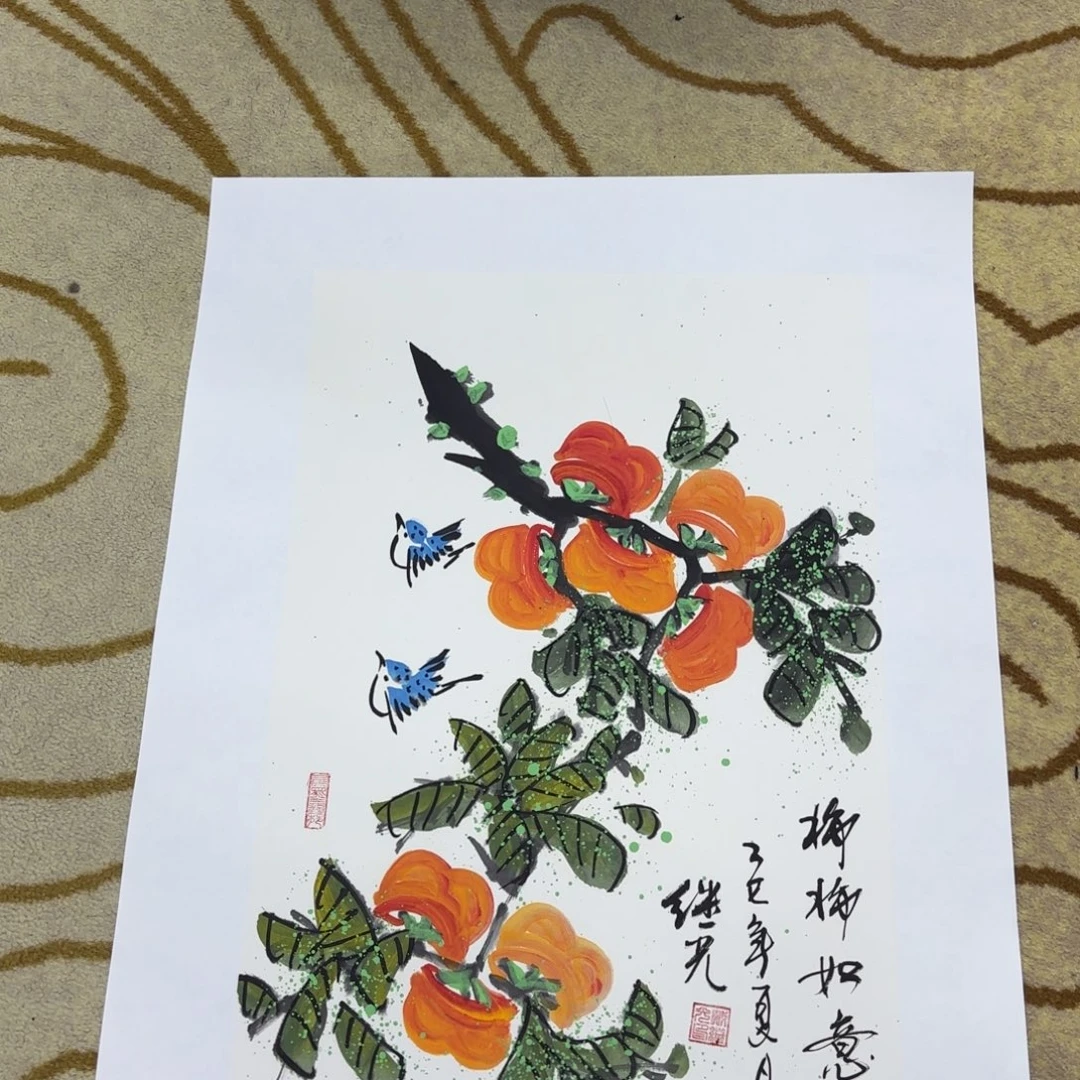 柿柿如意
乙巳年夏月
继光